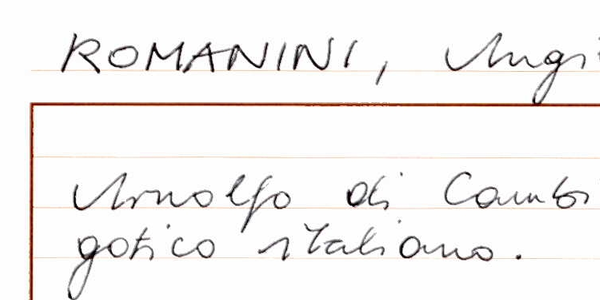 ROMANINI, Angi
Arnolfo di Cambi
gotico italiano.